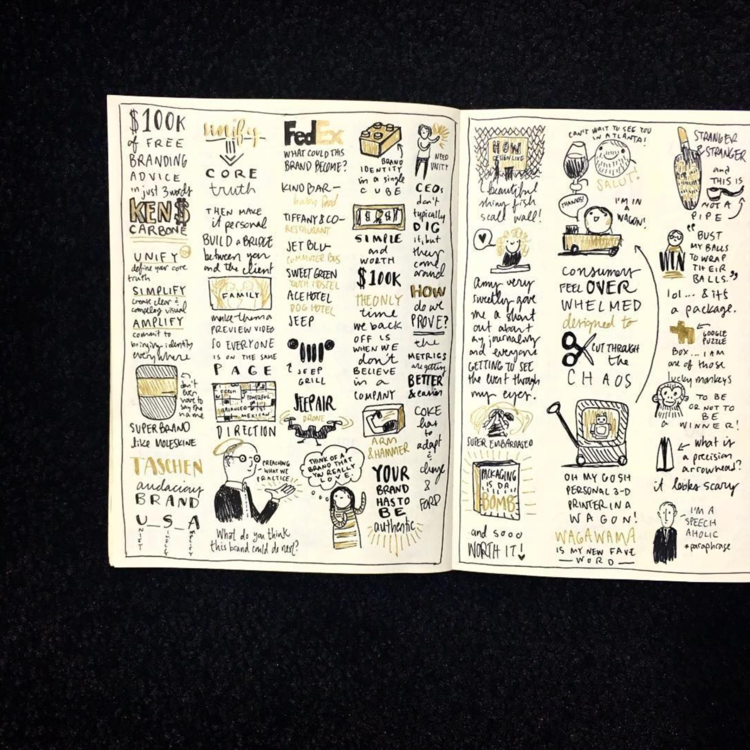 $100K
of FREE
BRANDING
ADVICE
in just 3 words
KEN$
CARBONE
UNIFY
define your core
truth
SIMPLIFY
create clear &
compelling visual
AMPLIFY
commit to
bringing identity
everywhere
don't
even
have to
say the
name
SUPERBRAND
like MOLESKINE
TASCHEN
audacious
BRAND
U_S_A
UNIFY
SIMPLIFY
AMPLIFY
unify
CORE
truth
THEN MAKE
it personal
BUILD A BRIDGE
between you
and the client
FAMILY
make them a
PREVIEW VIDEO
SO EVERYONE
IS ON THE SAME
PAGE
DIRECTION
PREACHING
WHAT WE
PRACTICE!
What do you think
this brand could do next?
FedEx
WHAT COULD THIS
BRAND BECOME?
KIND BAR—
baby food
TIFFANY & CO—
RESTAURANT
JET BLU—
COMMUTER BUS
SWEET GREEN
ACE HOTEL
DOG HOTEL
JEEP
? JEEP
GRILL
JEEPAIR
DRONE
THINK OF A
BRAND THAT
YOU REALLY
LOVE.
BRAND
IDENTITY
in a single
CUBE
SIMPLE
and
WORTH
$100K
THE ONLY
time
we back
OFF IS
WHEN WE
don't
BELIEVE
in a
COMPANY
ARM
& HAMMER
YOUR
BRAND
HAS TO
BE
authentic
NEED
UNITY?
CEOs
don't
typically
DIG
it, but
they
come
around
HOW
do we
PROVE?
the
METRICS
are getting
BETTER
& easier
COKE
has to
adapt
&
change
&
FORD
HOW
DESIGN LIVE
A beautiful
shiny fish
scale wall!
Amy very
sweetly gave
me a shout
out about
my journaling
and everyone
GETTING TO SEE
the event through
my eyes.
SUPER EMBARRASSED
PACKAGING
IS DA
BOMB
and sooo
WORTH IT!
CAN'T WAIT TO SEE YOU
IN ATLANTA!
SALUT!
THANKS!
I'M IN
A
WAGON!
Consumers
FEEL OVER
WHELMED
designed to
CUT THROUGH
the
CHAOS
OH MY GOSH
PERSONAL 3-D
PRINTER IN A
WAGON!
WAGAWAMA
IS MY NEW FAVE
— WORD —
STRANGER
& STRANGER
and
THIS IS
NOT A
PIPE
"BUST
MY BALLS
TO WRAP
THEIR
BALLS."
WIN
lol... & it's
a package.
GOOGLE
PUZZLE
BOX... I AM
one of those
lucky monkeys
TO BE
OR NOT TO
BE
a WINNER!
what is
a precision
arrowhead?
it looks scary
I'M A
SPEECH
AHOLIC
*paraphrase